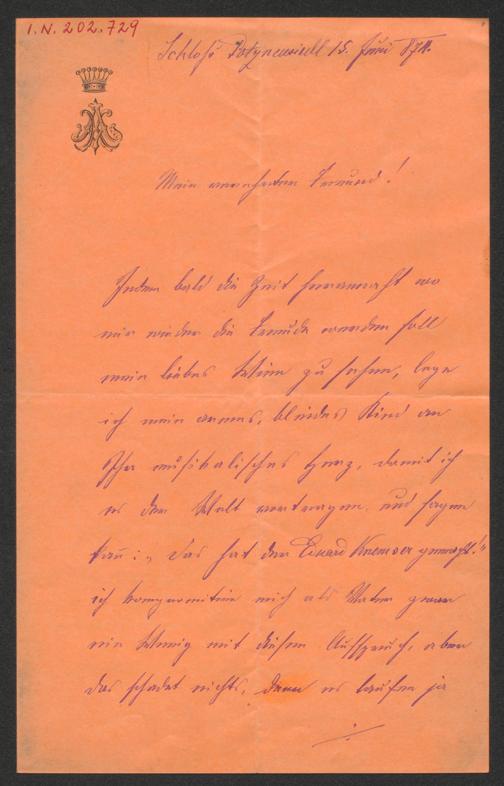 I.N. 202.729
Schloß 15. Juni 874.
Mein verehrter Freund!
Indem bald die Zeit herannaht wo
mir wieder die Freude werden soll
mein liebes Wien zu sehen, lege
ich mein armes, blindes Kind an
Ihr musikalisches Herz, damit ich
es der Welt vortragen und sagen
kann: „das hat der Eduard Kremser gemacht!“
ich kompromitire mich als Vater zwar
ein Wenig mit diesem Ausspruch, aber
das schadet nichts, denn es laufen ja